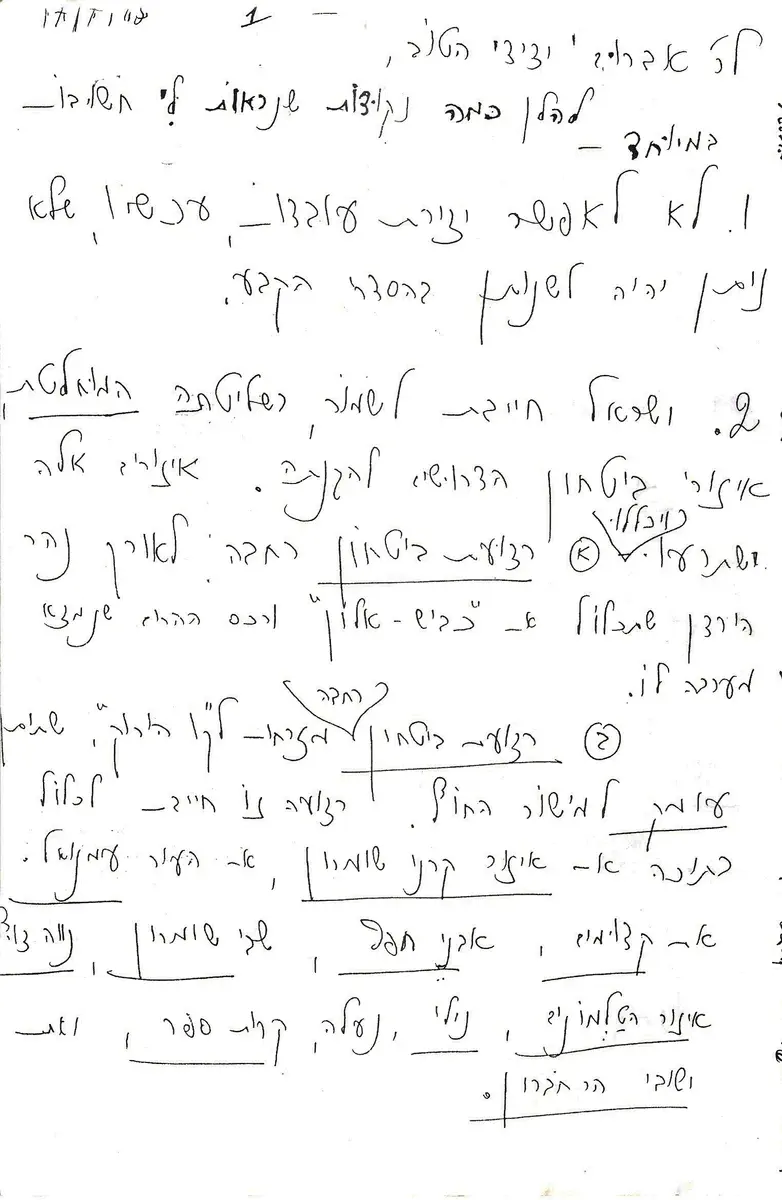 1
לכ' אברהם ידידי הטוב,
להלן כמה נקודות שנראות לי חשובות
במיוחד –
1. לא לאפשר יצירת עובדות, עכשיו, שלא
ניתן יהיה לשנותן בהסדר הקבע.
2. ישראל חייבת לשמור, בשליטתה המוחלטת,
איזורי ביטחון הדרושים להגנתה. איזורים אלה
ויכללו
ישתרעו א רצועת ביטחון רחבה לאורך נהר
הירדן שתכלול את "כביש-אלון" ורכס ההרים שנמצא
מערבה לו.
רחבה
ב רצועת ביטחון מזרחית ל"קו הירוק", שתיתן
עומק למישור החוף. רצועה זו חייבת לכלול
בתוכה את איזור קרני שומרון, את העיר עימנואל.
את קדומים, אבני חפץ, שבי שומרון, נווה צוף
איזור הטלמונים, נילי, נעלה, קרית ספר, ואת
ישובי הר חברון.